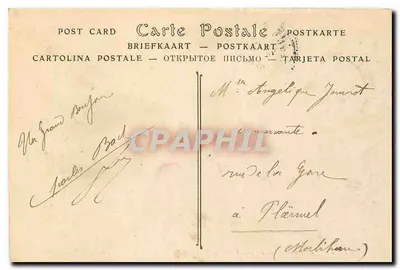 POST CARD Carte Postale POSTKARTE
BRIEFKAART — POSTKAART
CARTOLINA POSTALE — ОТКРЫТОЕ ПИСЬМО — TARJETA POSTAL
Un Grand Bonjour
CPHPHIL.COM
Angélique
rue de la Gare
à Plœrmel
(Morbihan)